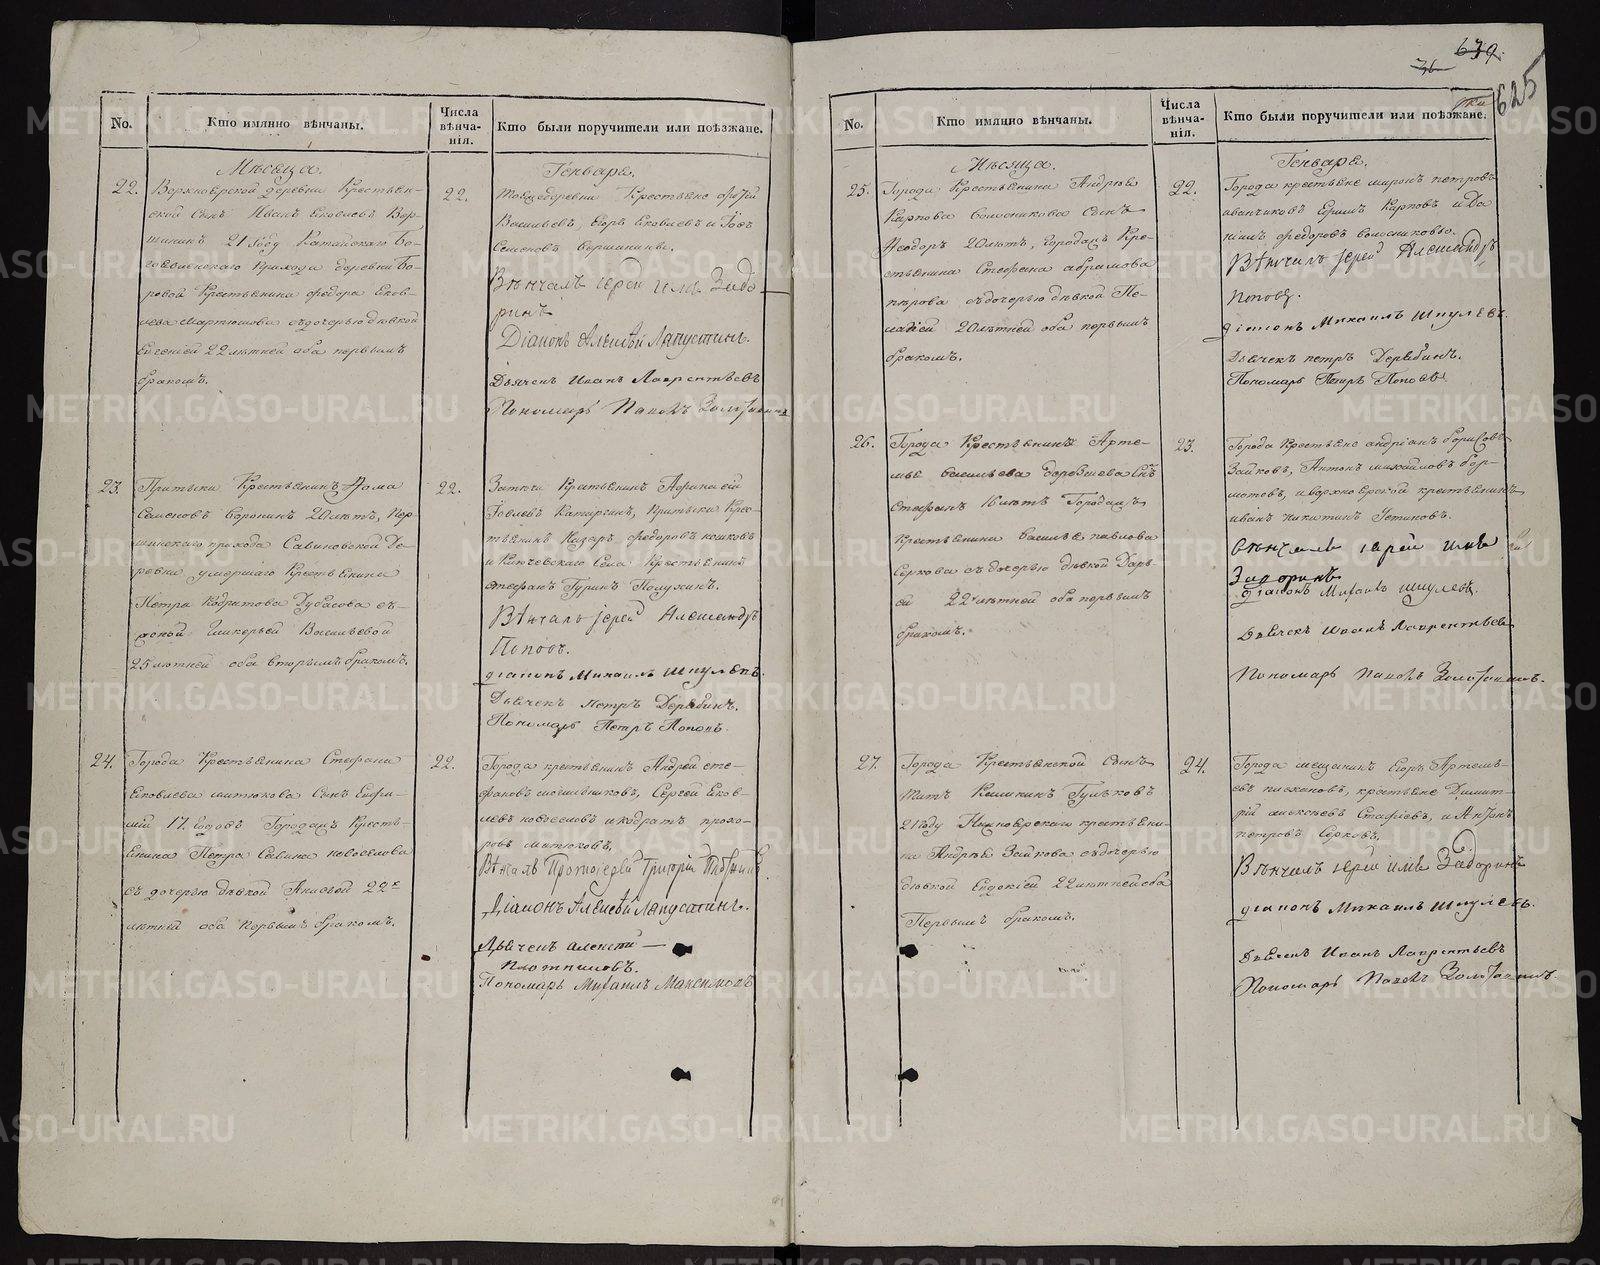 No.
Кто имянно вѣнчаны.
Числа
вѣнча-
нія.
Кто были поручители или поѣзжане.
Мѣсеца
Генваре.
22.
Верхноярской деревни Крестьян-
ской сынъ Иванъ Яковлевъ Вор-
шининъ 21 Году Катайскаго Бо-
гоявленскаго Прихода деревни Бо-
ровой Крестьянина Федора Яков-
лева Мартюшова съ дочерью девкой
Евгеніей 22 лѣтней оба первымъ
бракомъ.
22.
Тоежедеревни Крестьяне
Васильевъ, Егоръ Яковлевъ и
Семеновъ Воршинины.
Вѣнчалъ Іерей Илія Задо-
ринъ
Діаконъ Алексѣй Лапустинъ.
Дьячекъ Иванъ Лаврентьевъ
Пономарь Павелъ
23.
Притыки Крестьянинъ Фома
Семеновъ Воронинъ 20 лѣтъ, Пер-
шинскаго прихода Савиновской Де-
ревни умершаго Крестьянина
Петра Кодратова Дубасова съ
женой Гликерьей Васильевой
25 лѣтней оба вторымъ бракомъ.
22.
Затечи Крестьянинъ Афинасей
Іовлевъ Катыргинъ, Притыки Крес-
тьянинъ Назаръ Федоровъ кошковъ
и Ключевскаго Села Крестьянинъ
Стефанъ Гуринъ Полухинъ.
Вѣнчалъ Іерей Александръ
Поповъ.
діаконъ Михаилъ Шпулевъ.
Дьячекъ Петръ Дерябинъ.
Пономарь Петръ Поповъ.
24.
Города Крестьянина Стефана
Яковлева митюкова Сынъ Ефи-
мій 17. Годовъ Городацъ Кресть-
янина Петра Савина новоселова
съ дочерью дѣвкой Анисьей 22х
лѣтней оба первымъ бракомъ.
22.
Города крестьянинъ Андрей сте-
фановъ Сергей Яков-
левъ новоселовъ и кодратъ прохо-
ровъ митюковъ,
Вѣнчалъ Протоіерей Григорій
Діаконъ Алексѣй Лапустинъ.
Дьячекъ алексѣй
плотниковъ.
Пономарь Михаилъ Максимовъ
36
639.
625
No.
Кто имянно вѣнчаны.
Числа
вѣнча-
нія.
Кто были поручители или поѣзжане.
Мѣсяца.
Генваре.
25.
Города Крестьянина Андрея
Карпова Колосникова сынъ
Феодоръ 20 лѣтъ, городацъ Кре-
стьянина Стефана абрамова
пѣрова съ дочерью дѣвкой Пе-
лагіей 20 лѣтней оба первымъ
бракомъ.
22.
Города крестьяне миронъ петровъ
иванчиковъ Ефимъ Карповъ и Да
нилъ федоровъ колосниковы.
Вѣнчалъ Іерей Александръ
Поповъ.
діаконъ Михаилъ Шпулевъ.
Дьячекъ петръ Дерябинъ.
Пономарь Петръ Поповъ
26.
Города Крестьянина Арте-
мье васильева сынъ
Стефанъ 16 лѣтъ Городацъ
крестьянина василье павлова
Серкова съ дочерью дѣвкой Дарь-
ей 22 лѣтней оба первымъ
бракомъ.
23.
Города Крестьяне андріанъ борисовъ
Зайковъ, Антонъ михайловъ бор-
мотовъ, и верхноярской крестьянинъ
иванъ никитинъ Устиновъ.
вѣнчалъ Іерей Иліа
Задоринъ
діаконъ Михаилъ Шпулевъ.
Дьячекъ Иванъ Лаврентьевъ
Пономарь Павелъ
27.
Города Крестьянской сынъ
Титъ Келикинъ Гульковъ
21 году Нижноярскаго крестьяни-
на Андрея Зайкова съ дочерью
дѣвкой Евдокіей 22 лѣтней оба
Первымъ бракомъ.
24.
Города мещанинъ Егоръ Артемь-
евъ плехановъ, крестьяне Димит-
рій алексѣевъ Стафіевъ, и Антонъ
петровъ Серковъ.
Вѣнчалъ Іерей Иліа Задоринъ
діаконъ Михаилъ Шпулевъ.
Дьячекъ Иванъ Лаврентьевъ
Пономарь Павелъ
METRIKI.GASO-URAL.RU